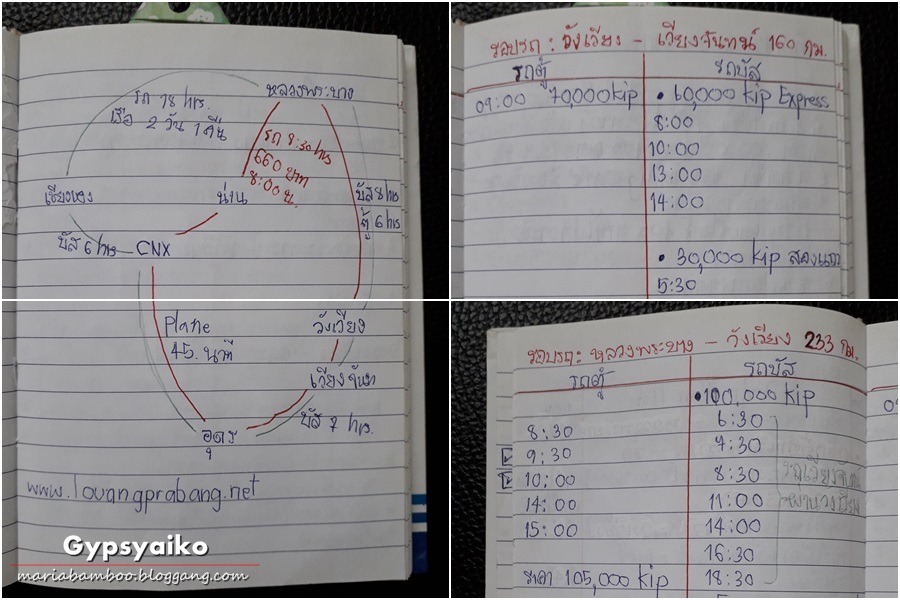 หลวงพระบาง
รถ 18 hrs.
เรือ 2 วัน 1 คืน
รถ 9:30 hrs
660 บาท
8:00 น.
เชียงของ
น่าน
บัส 8 hrs
ตู้ 6 hrs
บัส 6 hrs
CNX
Plane
45. นาที
วังเวียง
เวียงจันทน์
บัส 2 hrs.
อุดร
www.louangprabang.net
Gypsyaiko
mariabamboo.bloggang.com
รอบรถ : วังเวียง - เวียงจันทน์ 160 กม.
รถตู้ รถบัส
09:00 70,000 kip • 60,000 kip Express
8:00
10:00
13:00
14:00
• 30,000 kip สองแถว
5:30
รอบรถ: หลวงพระบาง - วังเวียง 233 กม.
รถตู้ รถบัส
• 100,000 kip
8:30 6:30
9:30 7:30
10:00 8:30
14:00 11:00
15:00 14:00
16:30
ราคา 105,000 kip 18:30
รถเวียงจันทน์
ผ่านวังเวียง